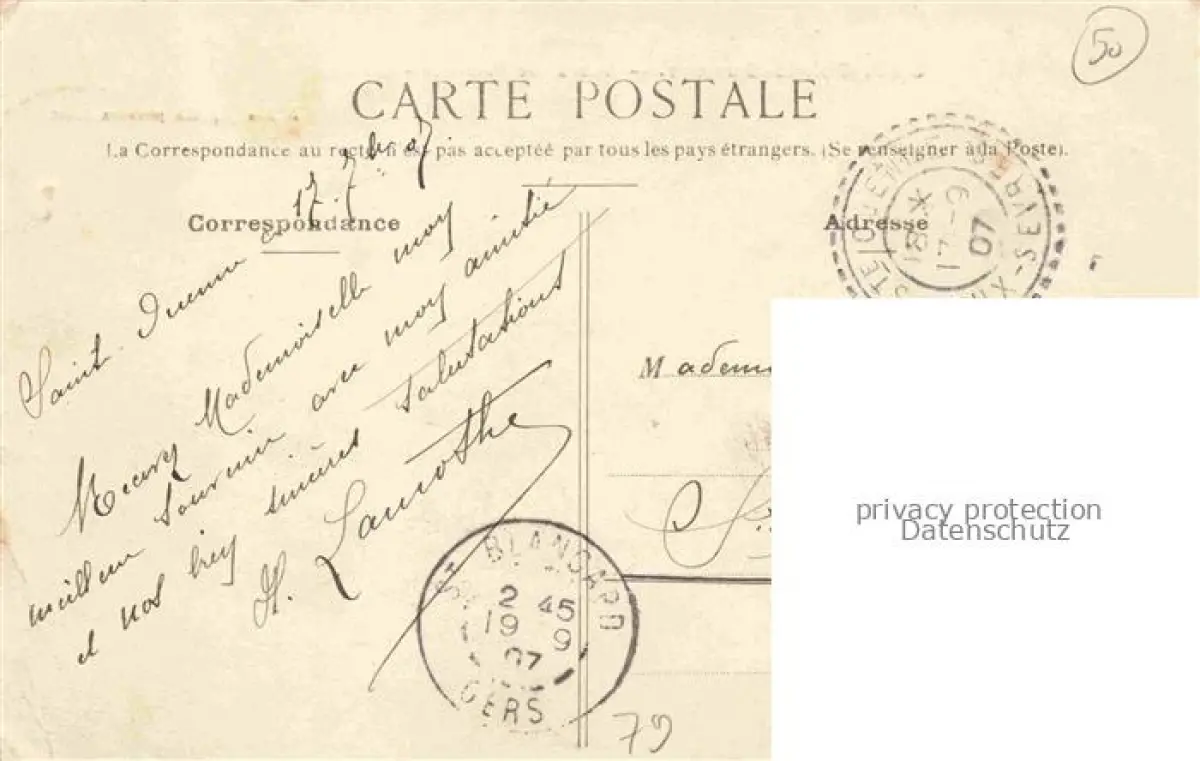 50
CARTE POSTALE
La Correspondance au recto n'est pas acceptée par tous les pays étrangers. (Se renseigner à la Poste).
Correspondance
Adresse
Saint 17. 7bre 07
Mademoiselle moy
meilleur souvenir avec moy amitié
et nos bien sincères salutations
H. Lamothe
Madem
ST BLANCARD
2 45
19 9
07
GERS
18 X
17 - 9
07
79
privacy protection
Datenschutz